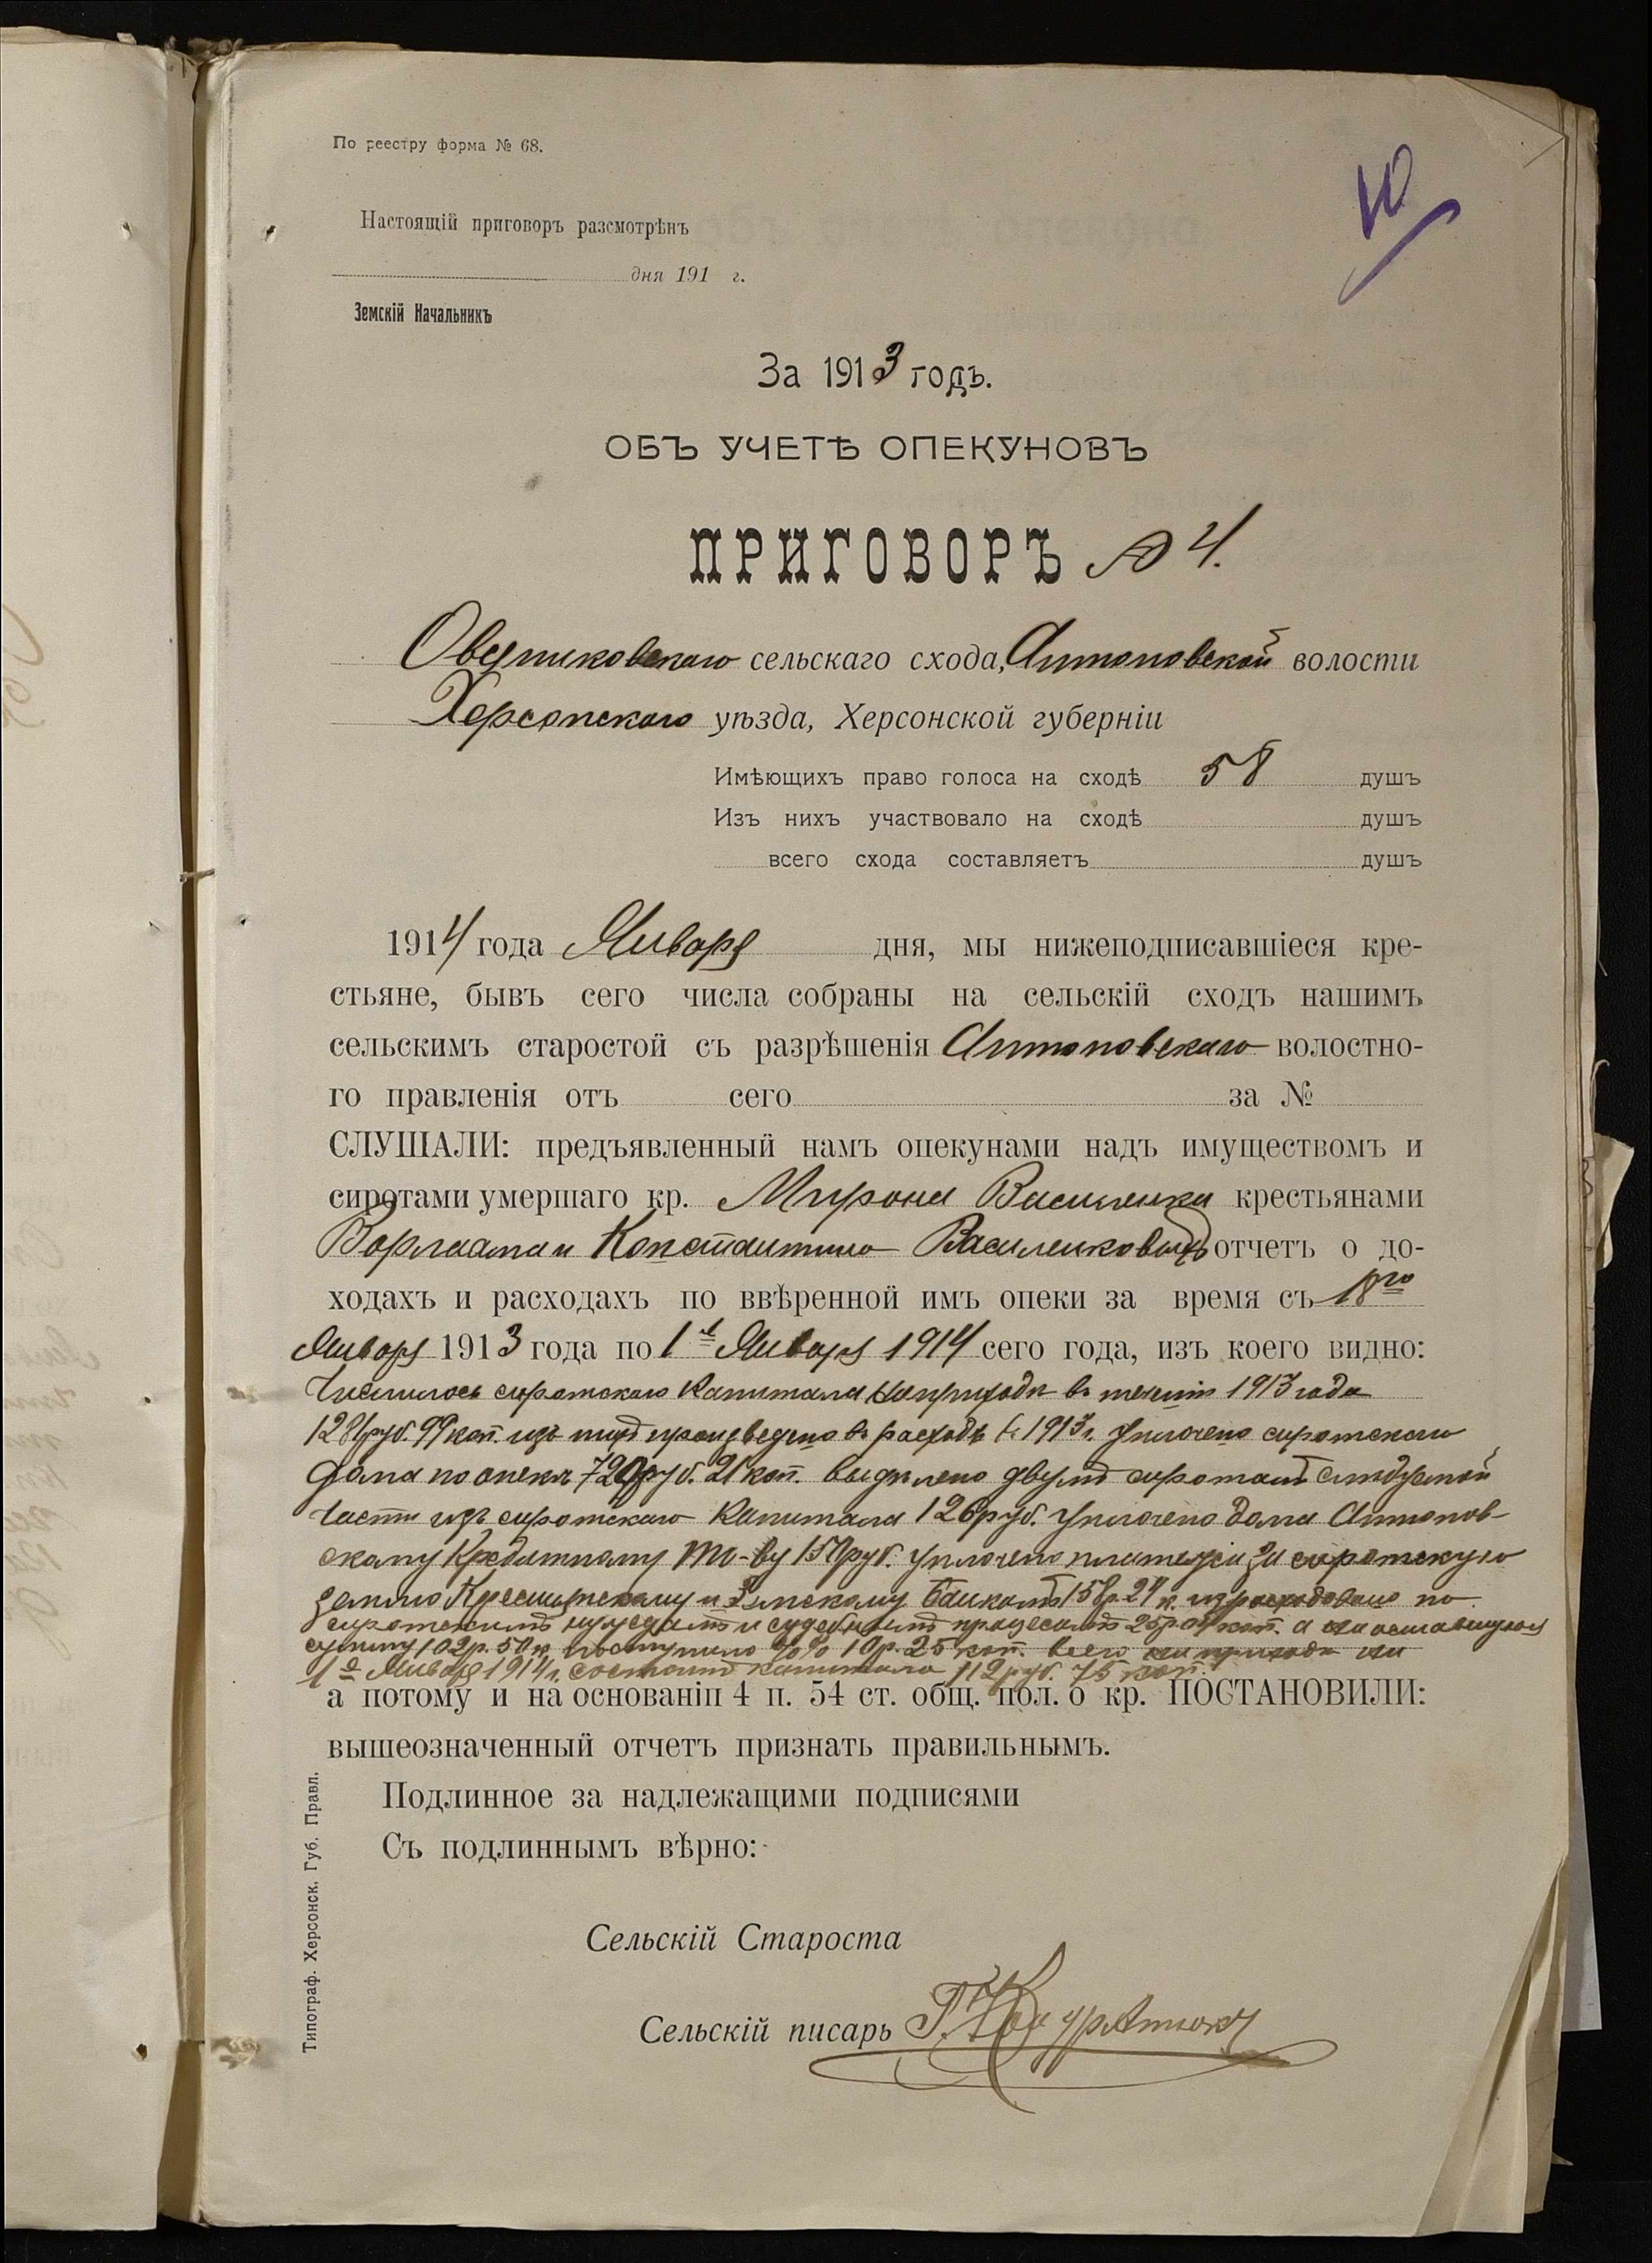 По реестру форма № 68.
10
Настоящій приговоръ разсмотрѣнъ
дня 191 г.
Земскій Начальникъ
За 1913 годъ.
ОБЪ УЧЕТѢ ОПЕКУНОВЪ
ПРИГОВОРЪ № 4.
сельскаго схода, Антоновской волости
Херсонскаго уѣзда, Херсонской губерніи
Имѣющихъ право голоса на сходѣ 58 душъ
Изъ нихъ участвовало на сходѣ душъ
всего схода составляетъ душъ
1914 года Января дня, мы нижеподписавшіеся кре-
стьяне, бывъ сего числа собраны на сельскій сходъ нашимъ
сельскимъ старостой съ разрѣшенія Антоновскаго волостно-
го правленія отъ сего за №
СЛУШАЛИ: предъявленный намъ опекунами надъ имуществомъ и
сиротами умершаго кр. Мирона Василенка крестьянами
Варлаама и Константина Василенковыхъ отчетъ о до-
ходахъ и расходахъ по ввѣренной имъ опеки за время съ 18го
Января 1913 года по 1е Января 1914 сего года, изъ коего видно:
Числилось сиротскаго капитала на приходѣ въ теченіи 1913 года
руб. 99 коп. изъ нихъ произведено въ расходъ въ 1913 г. уплочено сиротскаго
долга по опекѣ руб. 21 коп. выдѣлено двумъ сиротамъ слѣдуемой
части изъ сиротскаго капитала 126 руб. уплочено долга Антонов-
скому Кредитному Т-ву 150 руб. уплочено платежи за сиротскую
землю Крестьянскому и Земскому Банкамъ 158 р. 24 к. израсходовано по
сиротскимъ нуждамъ и судебнымъ процесамъ 25 р. коп. а на оставшуюся
сумму 102 р. 50 к. поступило %% 10 р. 25 коп. всего на приходѣ на
1е Января 1914 г. состоитъ капитала 112 руб. 75 коп.
а потому и на основаніи 4 п. 54 ст. общ. пол. о кр. ПОСТАНОВИЛИ:
вышеозначенный отчетъ признать правильнымъ.
Подлинное за надлежащими подписями
Съ подлиннымъ вѣрно:
Сельскій Староста
Сельскій писарь
Типограф. Херсонск. Губ. Правл.